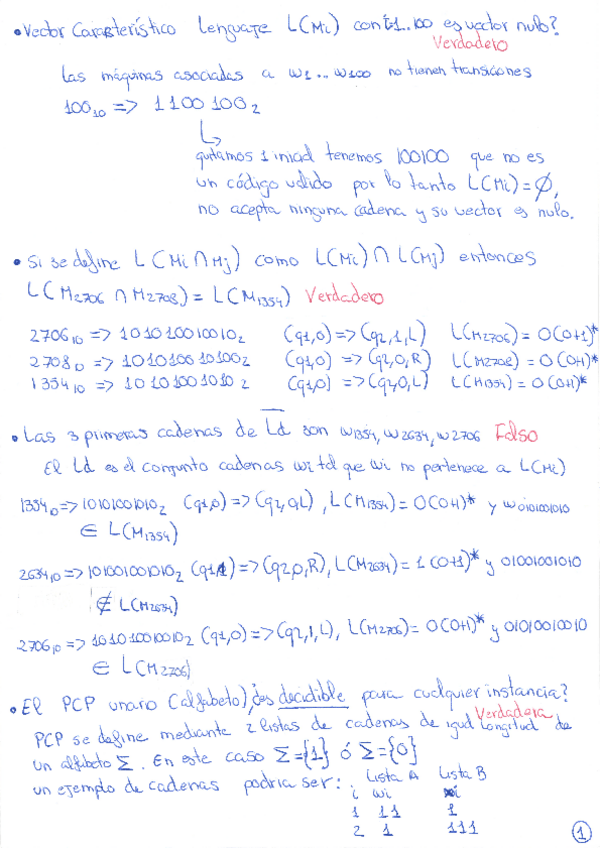 • Vector Característico Lenguaje L(Mi) con i:1..100 es vector nulo?
Verdadero
Las máquinas asociadas a w1...w100 no tienen transiciones
100₁₀ => 1100100₂
quitamos 1 inicial tenemos 100100 que no es
un código valido por lo tanto L(Mi)=∅,
no acepta ninguna cadena y su vector es nulo.
• Si se define L(Mi∩Mj) como L(Mi)∩L(Mj) entonces
L(M2706 ∩ M2708) = L(M1354) Verdadero
2706₁₀ => 101010010010₂ (q1,0)=>(q2,1,L) L(M2706) = 0(0+1)*
2708₁₀ => 101010010100₂ (q1,0) => (q2,0,R) L(M2708) = 0(0+1)*
1354₁₀ => 10101001010₂ (q1,0) => (q2,0,L) L(M1354) = 0(0+1)*
• Las 3 primeras cadenas de L̅d̅ son w1354, w2634, w2706 Falso
El Ld es el conjunto cadenas wi tal que wi no pertenece a L(Mi)
1354₁₀=>10101001010₂ (q1,0)=>(q2,0,L), L(M1354)=0(0+1)* y w0101001010
∈ L(M1354)
2634₁₀=>101001001010₂ (q1,1)=>(q2,0,R), L(M2634)=1(0+1)* y 01001001010
∉ L(M2634)
2706₁₀=>101010010010₂ (q1,0)=>(q2,1,L), L(M2706)=0(0+1)* y 01010010010
∈ L(M2706)
• El PCP unario (alfabeto), ¿es decidible para cualquier instancia?
Verdadera
PCP se define mediante 2 listas de cadenas de igual longitud de
un alfabeto Σ. En este caso Σ={1} ó Σ={0}
un ejemplo de cadenas podria ser: Lista A Lista B
i wi xi
1 11 1
2 1 111
1